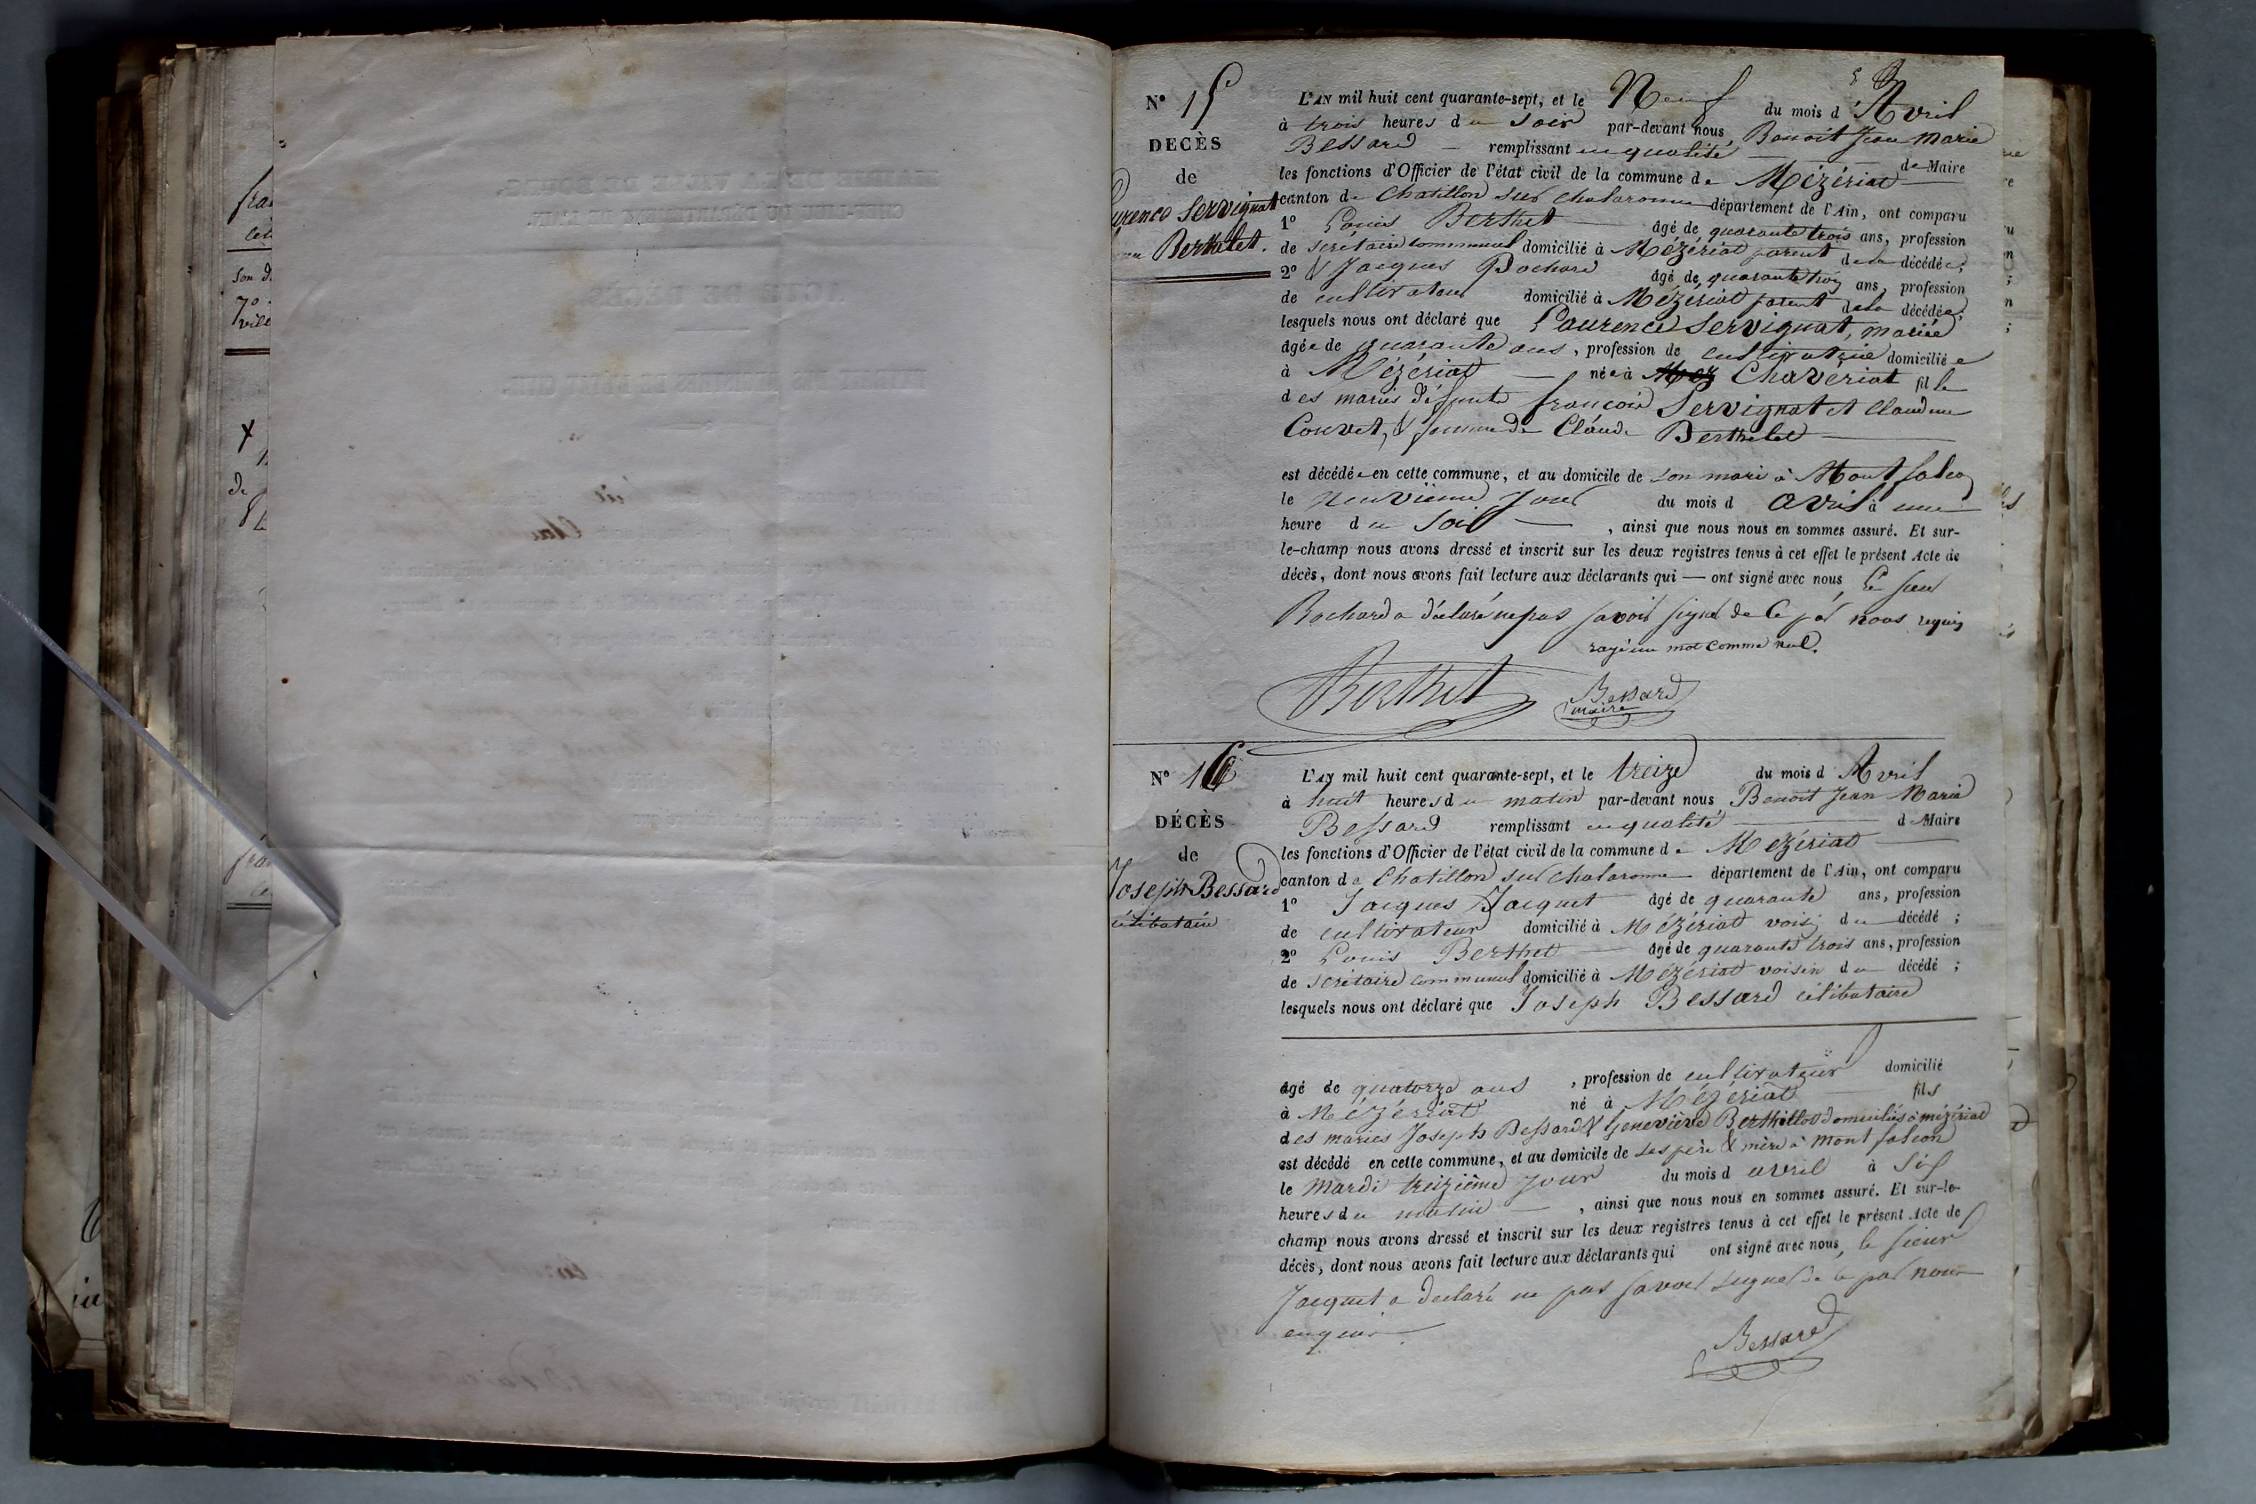 N° 15
DECÈS
de
Laurence Servignat
Berthelet.
L'AN mil huit cent quarante-sept, et le Neuf du mois d'Avril
à trois heures du soir par-devant nous Benoit Jean Marie
Bessard remplissant en qualité de Maire
les fonctions d'Officier de l'état civil de la commune de Mézériat
canton de Chatillon sur Chalaronne département de l'Ain, ont comparu
1° Louis Berthet âgé de quarante trois ans, profession
de secrétaire communal domicilié à Mézériat parent de la décédée;
2° & Jacques Rochard âgé de quarante trois ans, profession
de cultivateur domicilié à Mézériat parent de la décédée;
lesquels nous ont déclaré que Laurence Servignat, mariée
âgée de quarante ans, profession de cultivatrice domiciliée
à Mézériat née à Mez Chavériat fille
des mariés défunts françois Servignat et Claudine
Couvet, & femme de Claude Berthelet
est décédée en cette commune, et au domicile de son mari à Montfalcon
le neuvième jour du mois d avril à une
heure du Soir, ainsi que nous nous en sommes assuré. Et sur-
le-champ nous avons dressé et inscrit sur les deux registres tenus à cet effet le présent Acte de
décès, dont nous avons fait lecture aux déclarants qui — ont signé avec nous, Le sieur
Rochard a déclaré ne pas savoir signer de Ce par nous requis
rayé un mot comme nul.
Berthet
Bessard
maire
N° 16
DÉCÈS
de
Joseph Bessard
célibataire
L'AN mil huit cent quarante-sept, et le treize du mois d Avril
à huit heures du matin par-devant nous Benoit Jean Marie
Bessard remplissant en qualité de Maire
les fonctions d'Officier de l'état civil de la commune de Mézériat
canton de Chatillon sur Chalaronne département de l'Ain, ont comparu
1° Jacques Jacquet âgé de quarante ans, profession
de cultivateur domicilié à Mézériat voisin du décédé;
2° Louis Berthet âgé de quarante trois ans, profession
de secrétaire communal domicilié à Mézériat voisin du décédé;
lesquels nous ont déclaré que Joseph Bessard célibataire
âgé de quatorze ans, profession de cultivateur domicilié
à Mézériat né à Mézériat fils
des mariés Joseph Bessard & Geneviève Berthillot domiciliés à mézériat
est décédé en cette commune, et au domicile de ses père & mère à Montfalcon
le mardi treizième jour du mois d avril à six
heures du matin, ainsi que nous nous en sommes assuré. Et sur-le-
champ nous avons dressé et inscrit sur les deux registres tenus à cet effet le présent Acte de
décès, dont nous avons fait lecture aux déclarants qui ont signé avec nous, le sieur
Jacquet a declaré ne pas savoir signer de ce par nous
enquis.
Bessard